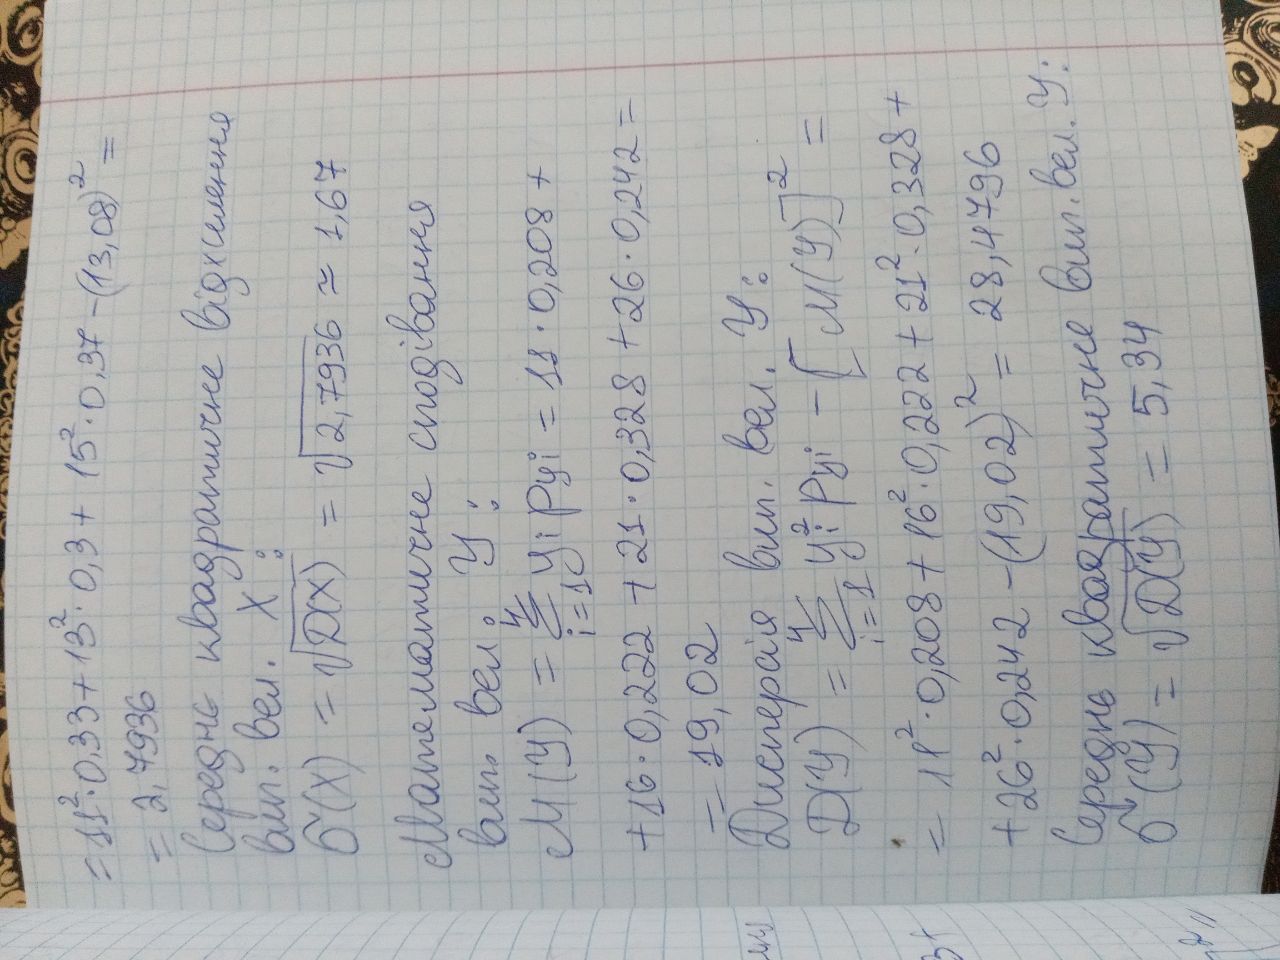 = 11²·0,33 + 13²·0,3 + 15²·0,37 - (13,08)² =
= 2,7936
Середнє квадратичне відхилення
вип. вел. X :
σ(X) = √D(X) = √2,7936 ≈ 1,67
Математичне сподівання
вип. вел. У :
М(У) = 4 Σ i=1 yi pyi = 11·0,208 +
+16·0,222 + 21·0,328 + 26·0,242 =
= 19,02
Дисперсія вип. вел. У :
D(У) = 4 Σ i=1 yi² pyi - [М(У)]² =
= 11²·0,208 + 16²·0,222 + 21²·0,328 +
+26²·0,242 - (19,02)² = 28,4796
Середнє квадратичне вип. вел. У :
σ(У) = √D(У) = 5,34